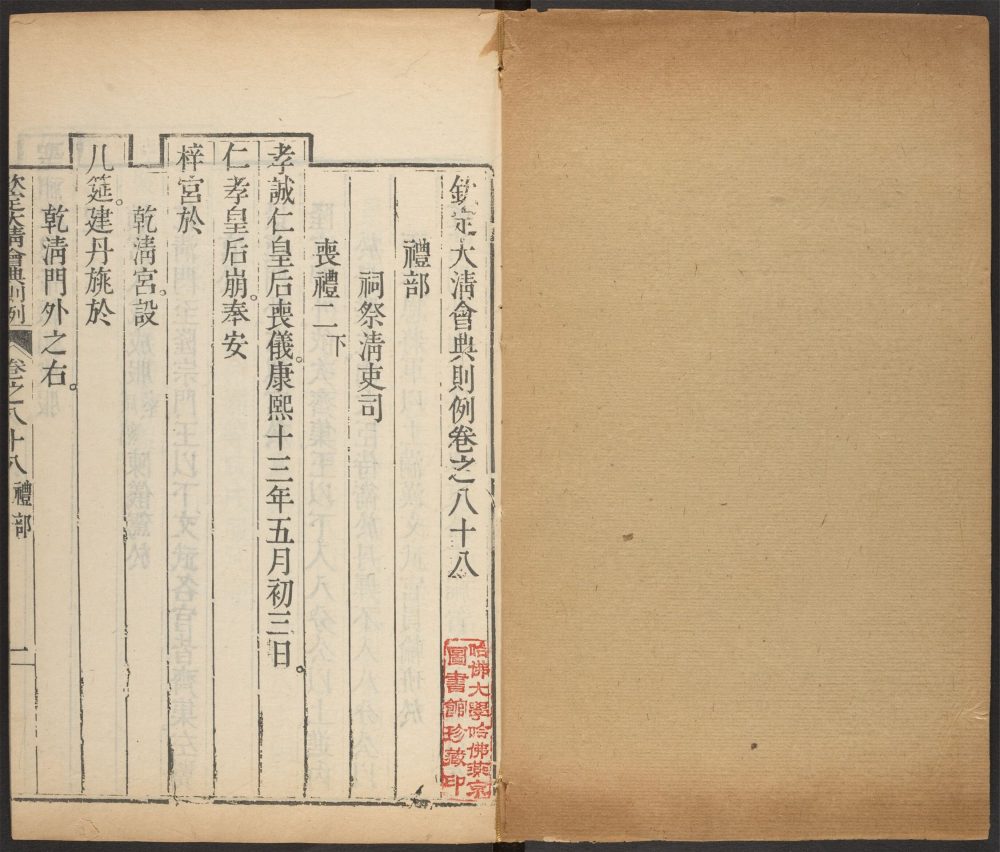 欽定大淸會典則例卷之八十八
禮部
祠祭淸吏司
喪禮二下
孝誠仁皇后喪儀。康熙十三年五月初三日。
仁孝皇后崩。奉安
梓宮於
乾淸宮。設
几筵。建丹旐於
乾淸門外之右。
欽定大淸會典則例
卷之八十八 禮部
一
哈佛大學哈佛燕京
圖書館珍藏印